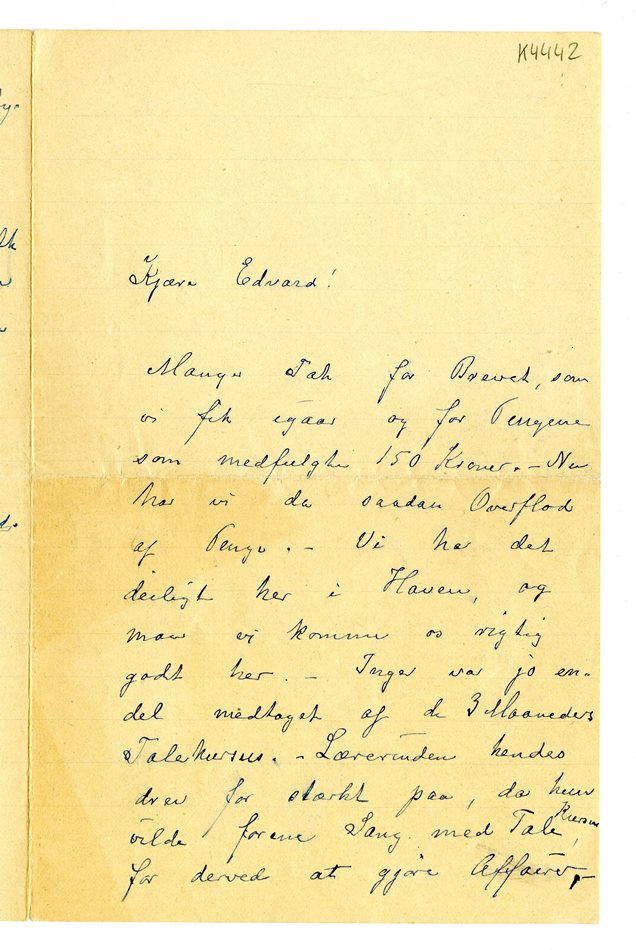 K4442
Kjære Edvard!
Mange Tak for Brevet, som
vi fik igaar og for Pengene
som medfulgte 150 Kroner. – Nu
har vi da saadan Overflod
af Penge. – Vi har det
deiligt her i Haven, og
maa vi komme os rigtig
godt her. – Inger var jo en-
del medtaget af de 3 Maaneders
Talekursus. – Lærerinden hendes
drev for stærkt paa, da hun
vilde forene Sang med Tale Kursus,
for derved at gjøre Affærer, –